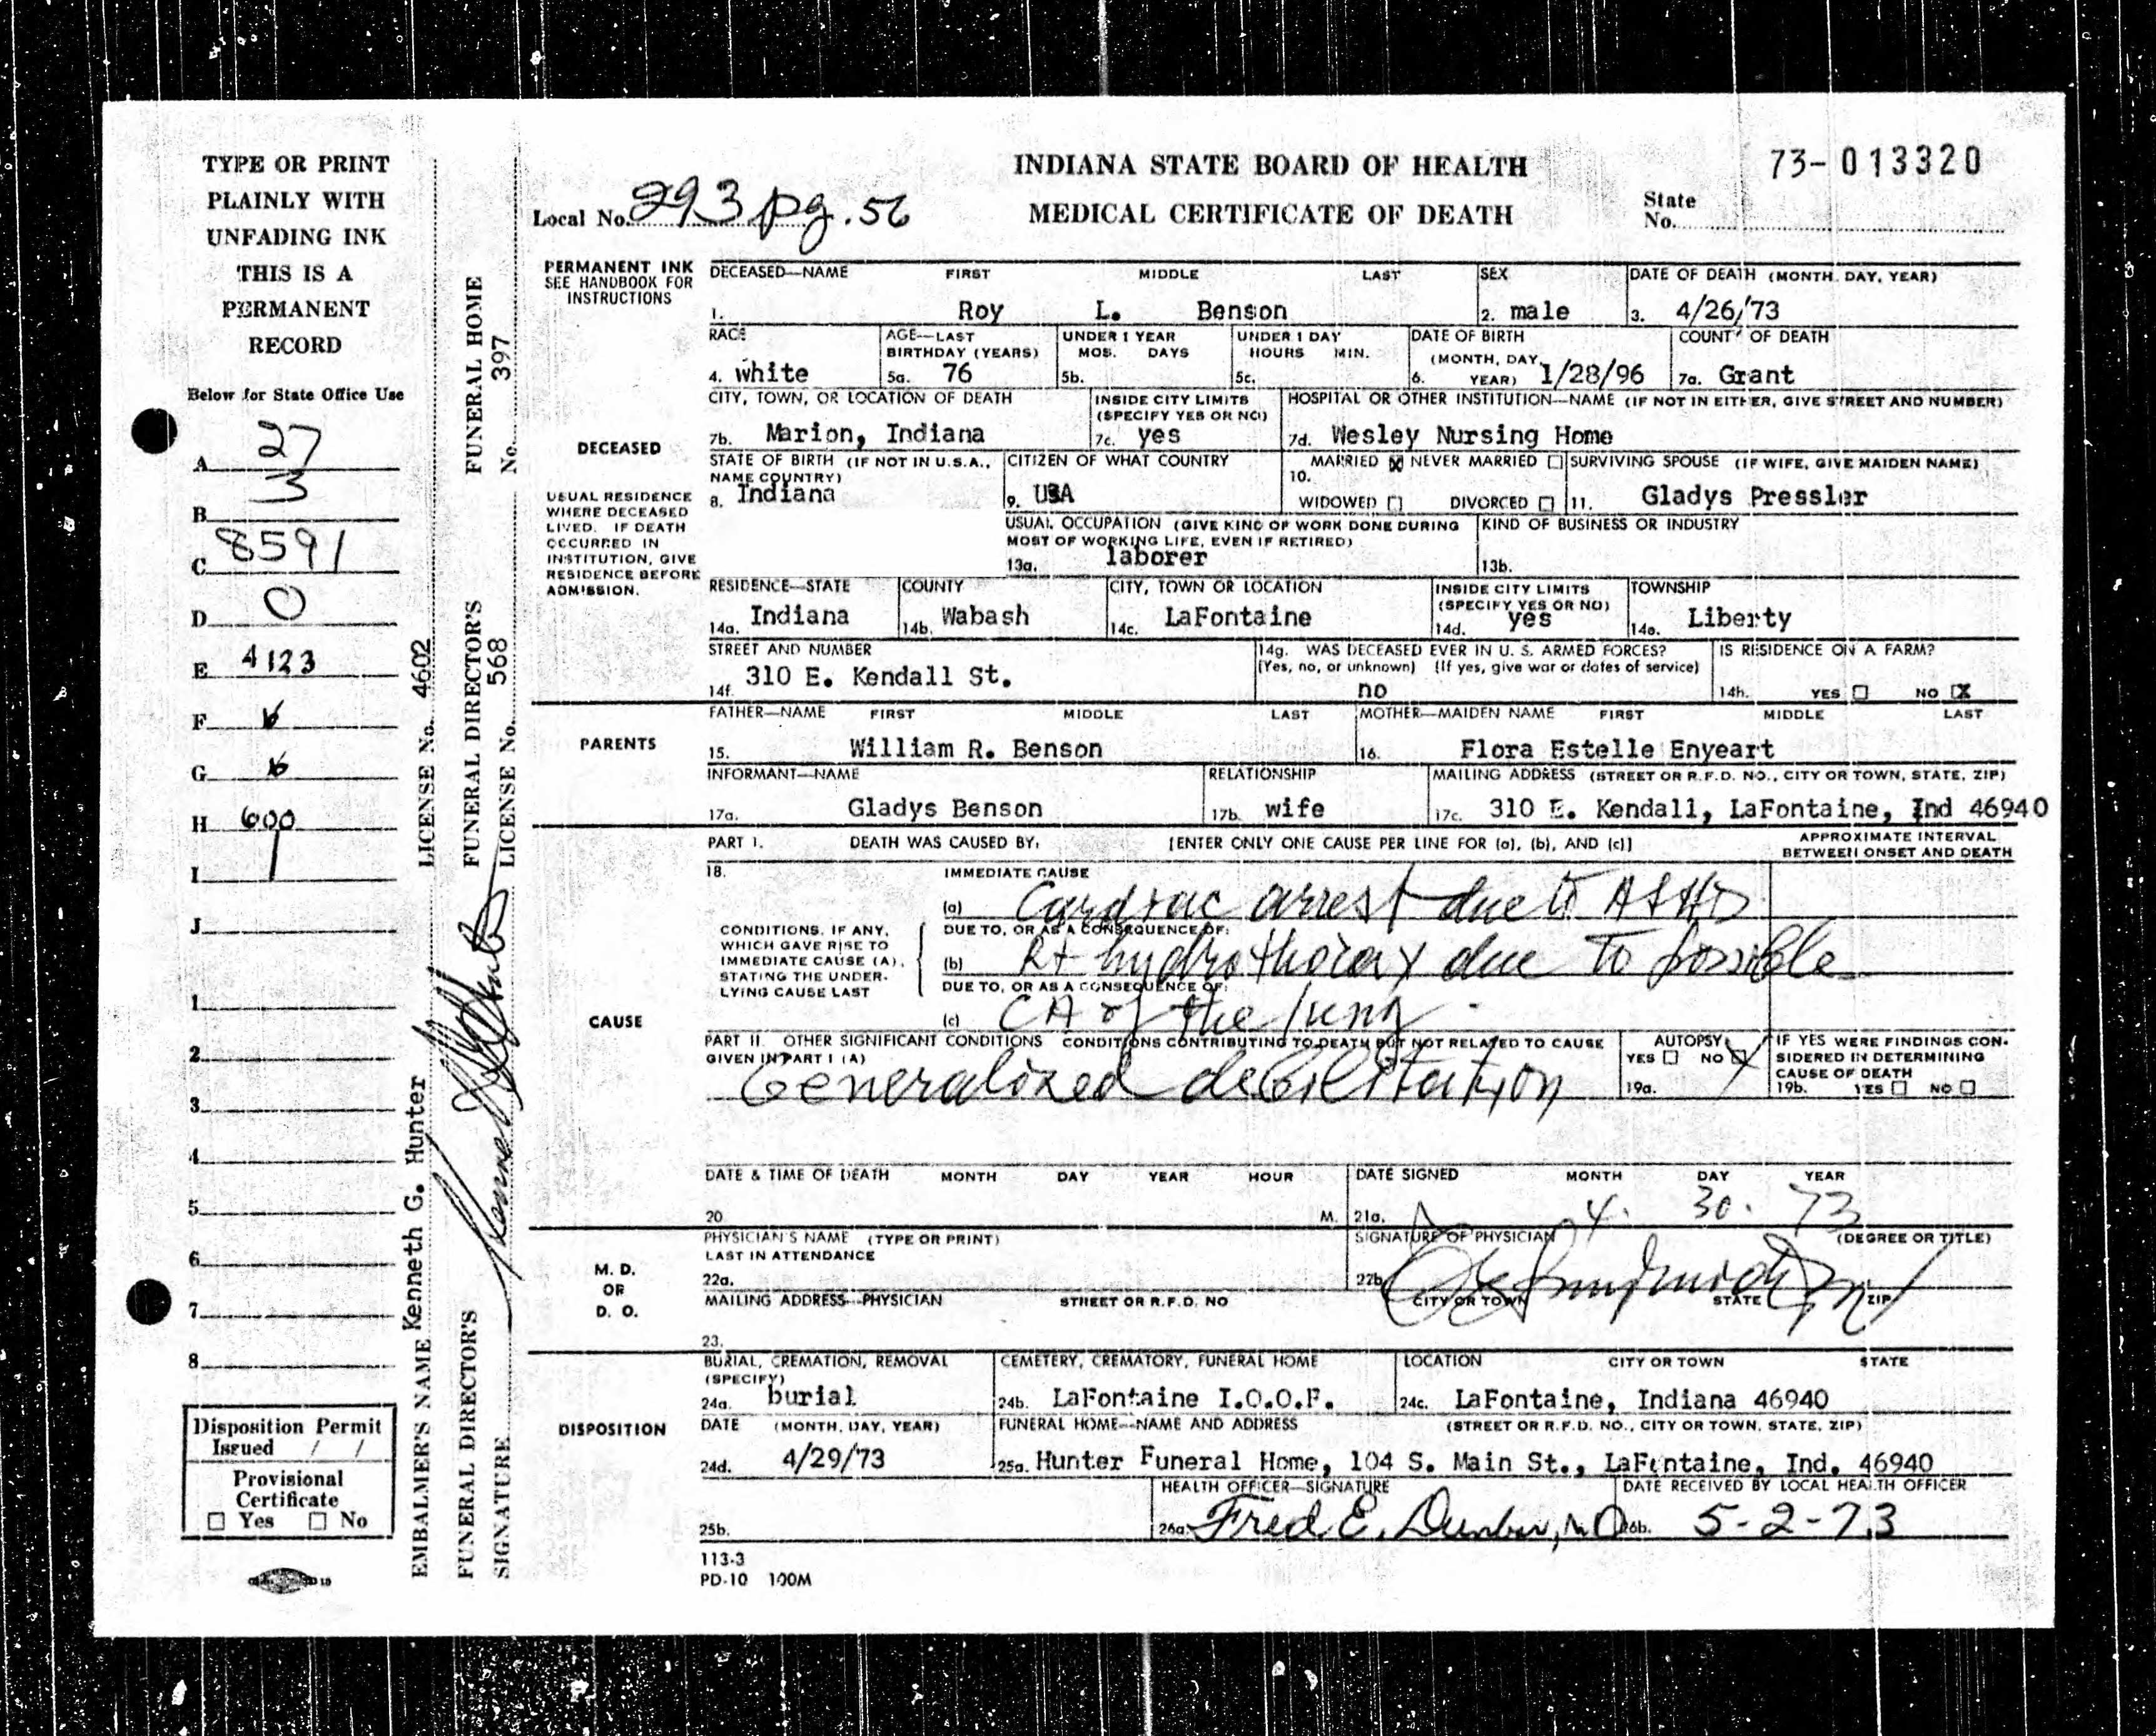 TYPE OR PRINT
PLAINLY WITH
UNFADING INK
THIS IS A
PERMANENT
RECORD
Below for State Office Use
A 27
B 3
C 8591
D 0
E 4123
F
G
H 600
I 1
J
1
2
3
4
5
6
7
8
Disposition Permit
Issued / /
Provisional
Certificate
☐ Yes ☐ No
EMBALMER'S NAME Kenneth G. Hunter LICENSE No. 4602
FUNERAL DIRECTOR'S FUNERAL DIRECTOR'S FUNERAL HOME
SIGNATURE LICENSE No. 568 No. 397
INDIANA STATE BOARD OF HEALTH
MEDICAL CERTIFICATE OF DEATH
73-013320
Local No. 293 pg. 56
State
No.
PERMANENT INK
SEE HANDBOOK FOR
INSTRUCTIONS
DECEASED—NAME FIRST MIDDLE LAST
1. Roy L. Benson
SEX
2. male
DATE OF DEATH (MONTH, DAY, YEAR)
3. 4/26/73
RACE
4. white
AGE—LAST
BIRTHDAY (YEARS)
5a. 76
UNDER 1 YEAR
MOS. DAYS
5b.
UNDER 1 DAY
HOURS MIN.
5c.
DATE OF BIRTH
(MONTH, DAY,
6. YEAR) 1/28/96
COUNTY OF DEATH
7a. Grant
DECEASED
CITY, TOWN, OR LOCATION OF DEATH
7b. Marion, Indiana
INSIDE CITY LIMITS
(SPECIFY YES OR NO)
7c. yes
HOSPITAL OR OTHER INSTITUTION—NAME (IF NOT IN EITHER, GIVE STREET AND NUMBER)
7d. Wesley Nursing Home
USUAL RESIDENCE
WHERE DECEASED
LIVED. IF DEATH
OCCURRED IN
INSTITUTION, GIVE
RESIDENCE BEFORE
ADMISSION.
STATE OF BIRTH (IF NOT IN U.S.A.,
NAME COUNTRY)
8. Indiana
CITIZEN OF WHAT COUNTRY
9. USA
10. MARRIED ☒ NEVER MARRIED ☐
WIDOWED ☐ DIVORCED ☐
SURVIVING SPOUSE (IF WIFE, GIVE MAIDEN NAME)
11. Gladys Pressler
USUAL OCCUPATION (GIVE KIND OF WORK DONE DURING
MOST OF WORKING LIFE, EVEN IF RETIRED)
13a. laborer
KIND OF BUSINESS OR INDUSTRY
13b.
RESIDENCE—STATE
14a. Indiana
COUNTY
14b. Wabash
CITY, TOWN OR LOCATION
14c. LaFontaine
INSIDE CITY LIMITS
(SPECIFY YES OR NO)
14d. yes
TOWNSHIP
14e. Liberty
STREET AND NUMBER
14f. 310 E. Kendall St.
14g. WAS DECEASED EVER IN U. S. ARMED FORCES?
(Yes, no, or unknown) (If yes, give war or dates of service)
no
IS RESIDENCE ON A FARM?
14h. YES ☐ NO ☒
PARENTS
FATHER—NAME FIRST MIDDLE LAST
15. William R. Benson
MOTHER—MAIDEN NAME FIRST MIDDLE LAST
16. Flora Estelle Enyeart
INFORMANT—NAME
17a. Gladys Benson
RELATIONSHIP
17b. wife
MAILING ADDRESS (STREET OR R.F.D. NO., CITY OR TOWN, STATE, ZIP)
17c. 310 E. Kendall, LaFontaine, Ind 46940
CAUSE
PART I. DEATH WAS CAUSED BY: [ENTER ONLY ONE CAUSE PER LINE FOR (a), (b), AND (c)]
APPROXIMATE INTERVAL
BETWEEN ONSET AND DEATH
18. IMMEDIATE CAUSE
(a) Cardiac arrest due to ASHD
CONDITIONS, IF ANY,
WHICH GAVE RISE TO
IMMEDIATE CAUSE (A),
STATING THE UNDER-
LYING CAUSE LAST
DUE TO, OR AS A CONSEQUENCE OF:
(b) Rt hydrothorax due to possible
DUE TO, OR AS A CONSEQUENCE OF:
(c) CA of the lung
PART II. OTHER SIGNIFICANT CONDITIONS CONDITIONS CONTRIBUTING TO DEATH BUT NOT RELATED TO CAUSE
GIVEN IN PART I (A)
Generalized debilitation
AUTOPSY
YES ☐ NO ☑
19a.
IF YES WERE FINDINGS CON-
SIDERED IN DETERMINING
CAUSE OF DEATH
19b. YES ☐ NO ☐
M. D.
OR
D. O.
DATE & TIME OF DEATH MONTH DAY YEAR HOUR
20 M.
DATE SIGNED MONTH DAY YEAR
21a. 4. 30. 73
PHYSICIAN'S NAME (TYPE OR PRINT)
LAST IN ATTENDANCE
22a.
SIGNATURE OF PHYSICIAN (DEGREE OR TITLE)
22b.
MAILING ADDRESS—PHYSICIAN STREET OR R.F.D. NO CITY OR TOWN STATE ZIP
23.
DISPOSITION
BURIAL, CREMATION, REMOVAL
(SPECIFY)
24a. burial
CEMETERY, CREMATORY, FUNERAL HOME
24b. LaFontaine I.O.O.F.
LOCATION CITY OR TOWN STATE
24c. LaFontaine, Indiana 46940
DATE (MONTH, DAY, YEAR)
24d. 4/29/73
FUNERAL HOME—NAME AND ADDRESS (STREET OR R.F.D. NO., CITY OR TOWN, STATE, ZIP)
25a. Hunter Funeral Home, 104 S. Main St., LaFontaine, Ind. 46940
25b.
HEALTH OFFICER—SIGNATURE
26a. Fred E. Dunbar, MD
DATE RECEIVED BY LOCAL HEALTH OFFICER
26b. 5-2-73
113-3
PD-10 100M